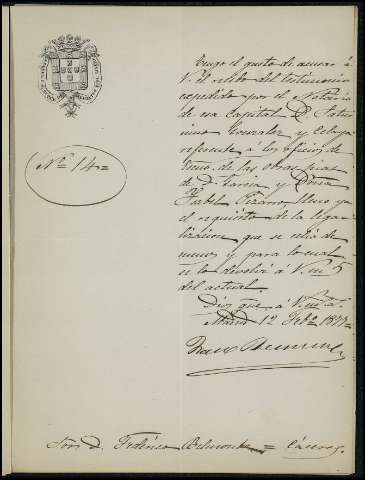 Nº 14=
Tengo el gusto de acusar á
V. el recibo del testimonio
expedido por el Notario
de esa Capital D. Satur
nino Gonzalez y Celaya
referente á los oficios de
de las obras pias
de D. y Doña
Isabel Pizarro, lleno ya
el requisito de la lega-
lizacion que se echó de
menos y para lo cual
se lo devolví á V. en 5
del actual.
Dios gue. á V. m. a.
Madrid 12 Febº 1877=
Sor. D. Federico Belmonte = Cáceres.